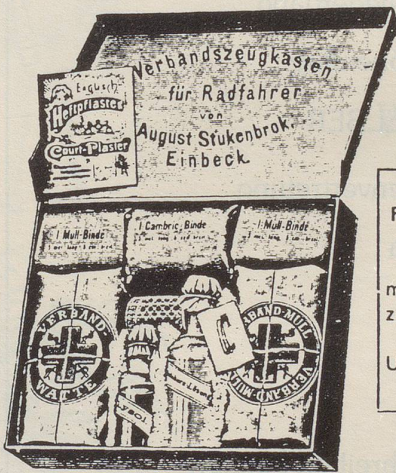 Verbandszeugkasten
für Radfahrer
von
August Stukenbrok,
Einbeck.
Englisch
Heftpflaster
Court-Plaster
1 Mull-Binde
1 Cambric Binde
1 Mull-Binde
VERBAND
WATTE
VERBAND-MULL
VERBAND-MULL
Lysol
F
m
z
U